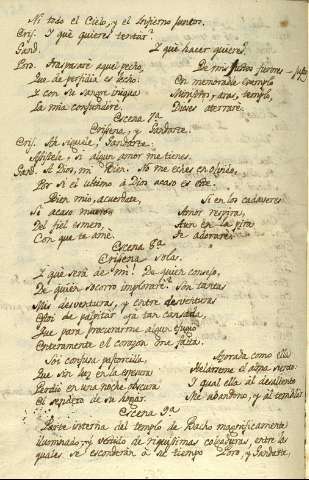 Ni todo el Cielo, y el Infierno juntos.
Cris. Y qué quieres tentar?
Gand. I qué hacer quieres?
Poro. Traspasaré aquel pecho,
Que de perfidia es hecho:
I con su sangre iniqua
La mia confundiré.
De mis justos furores
En memorable exemplo
Númen, aras, templo,
Dioses aterraré.
Escena 7ª
Crisena, y Gandarte.
Cris. Ah siguele, Gandarte:
Asistele, si algun amor me tienes.
Gand. A Dios, mi Bien. No me eches en olvido,
Por si el ultimo à Dios acaso es este.
Bien mio, acuerdate,
Si acaso muero
Del fiel esmero,
Con que te amé.
Si en los cadaveres
Amor respira,
Aun en la pira
Te adoraré.
Escena 8ª
Crisena sola.
I qué será de mi! De quien consejo,
De quién socorro imploraré? Son tantas
Mis desventuras, y entre desventuras
Estoi de palpitar ya tan cansada,
Que para procurarme algun
Enteramente el corazon me falta.
Soi confusa pastorcilla,
Que sin luz en la espesura
Perdió en una noche obscura
El sendero de su hogar.
Azorada como ella
Helarseme el alma siento:
I qual ella al desaliento
Me abandono, y al temblar
Escena 9ª
Parte interna del templo de Bacho magnificamente
iluminado, y vestido de riquisimas colgaduras, entre las
quales se esconderán à su tiempo Poro, y Gandarte,